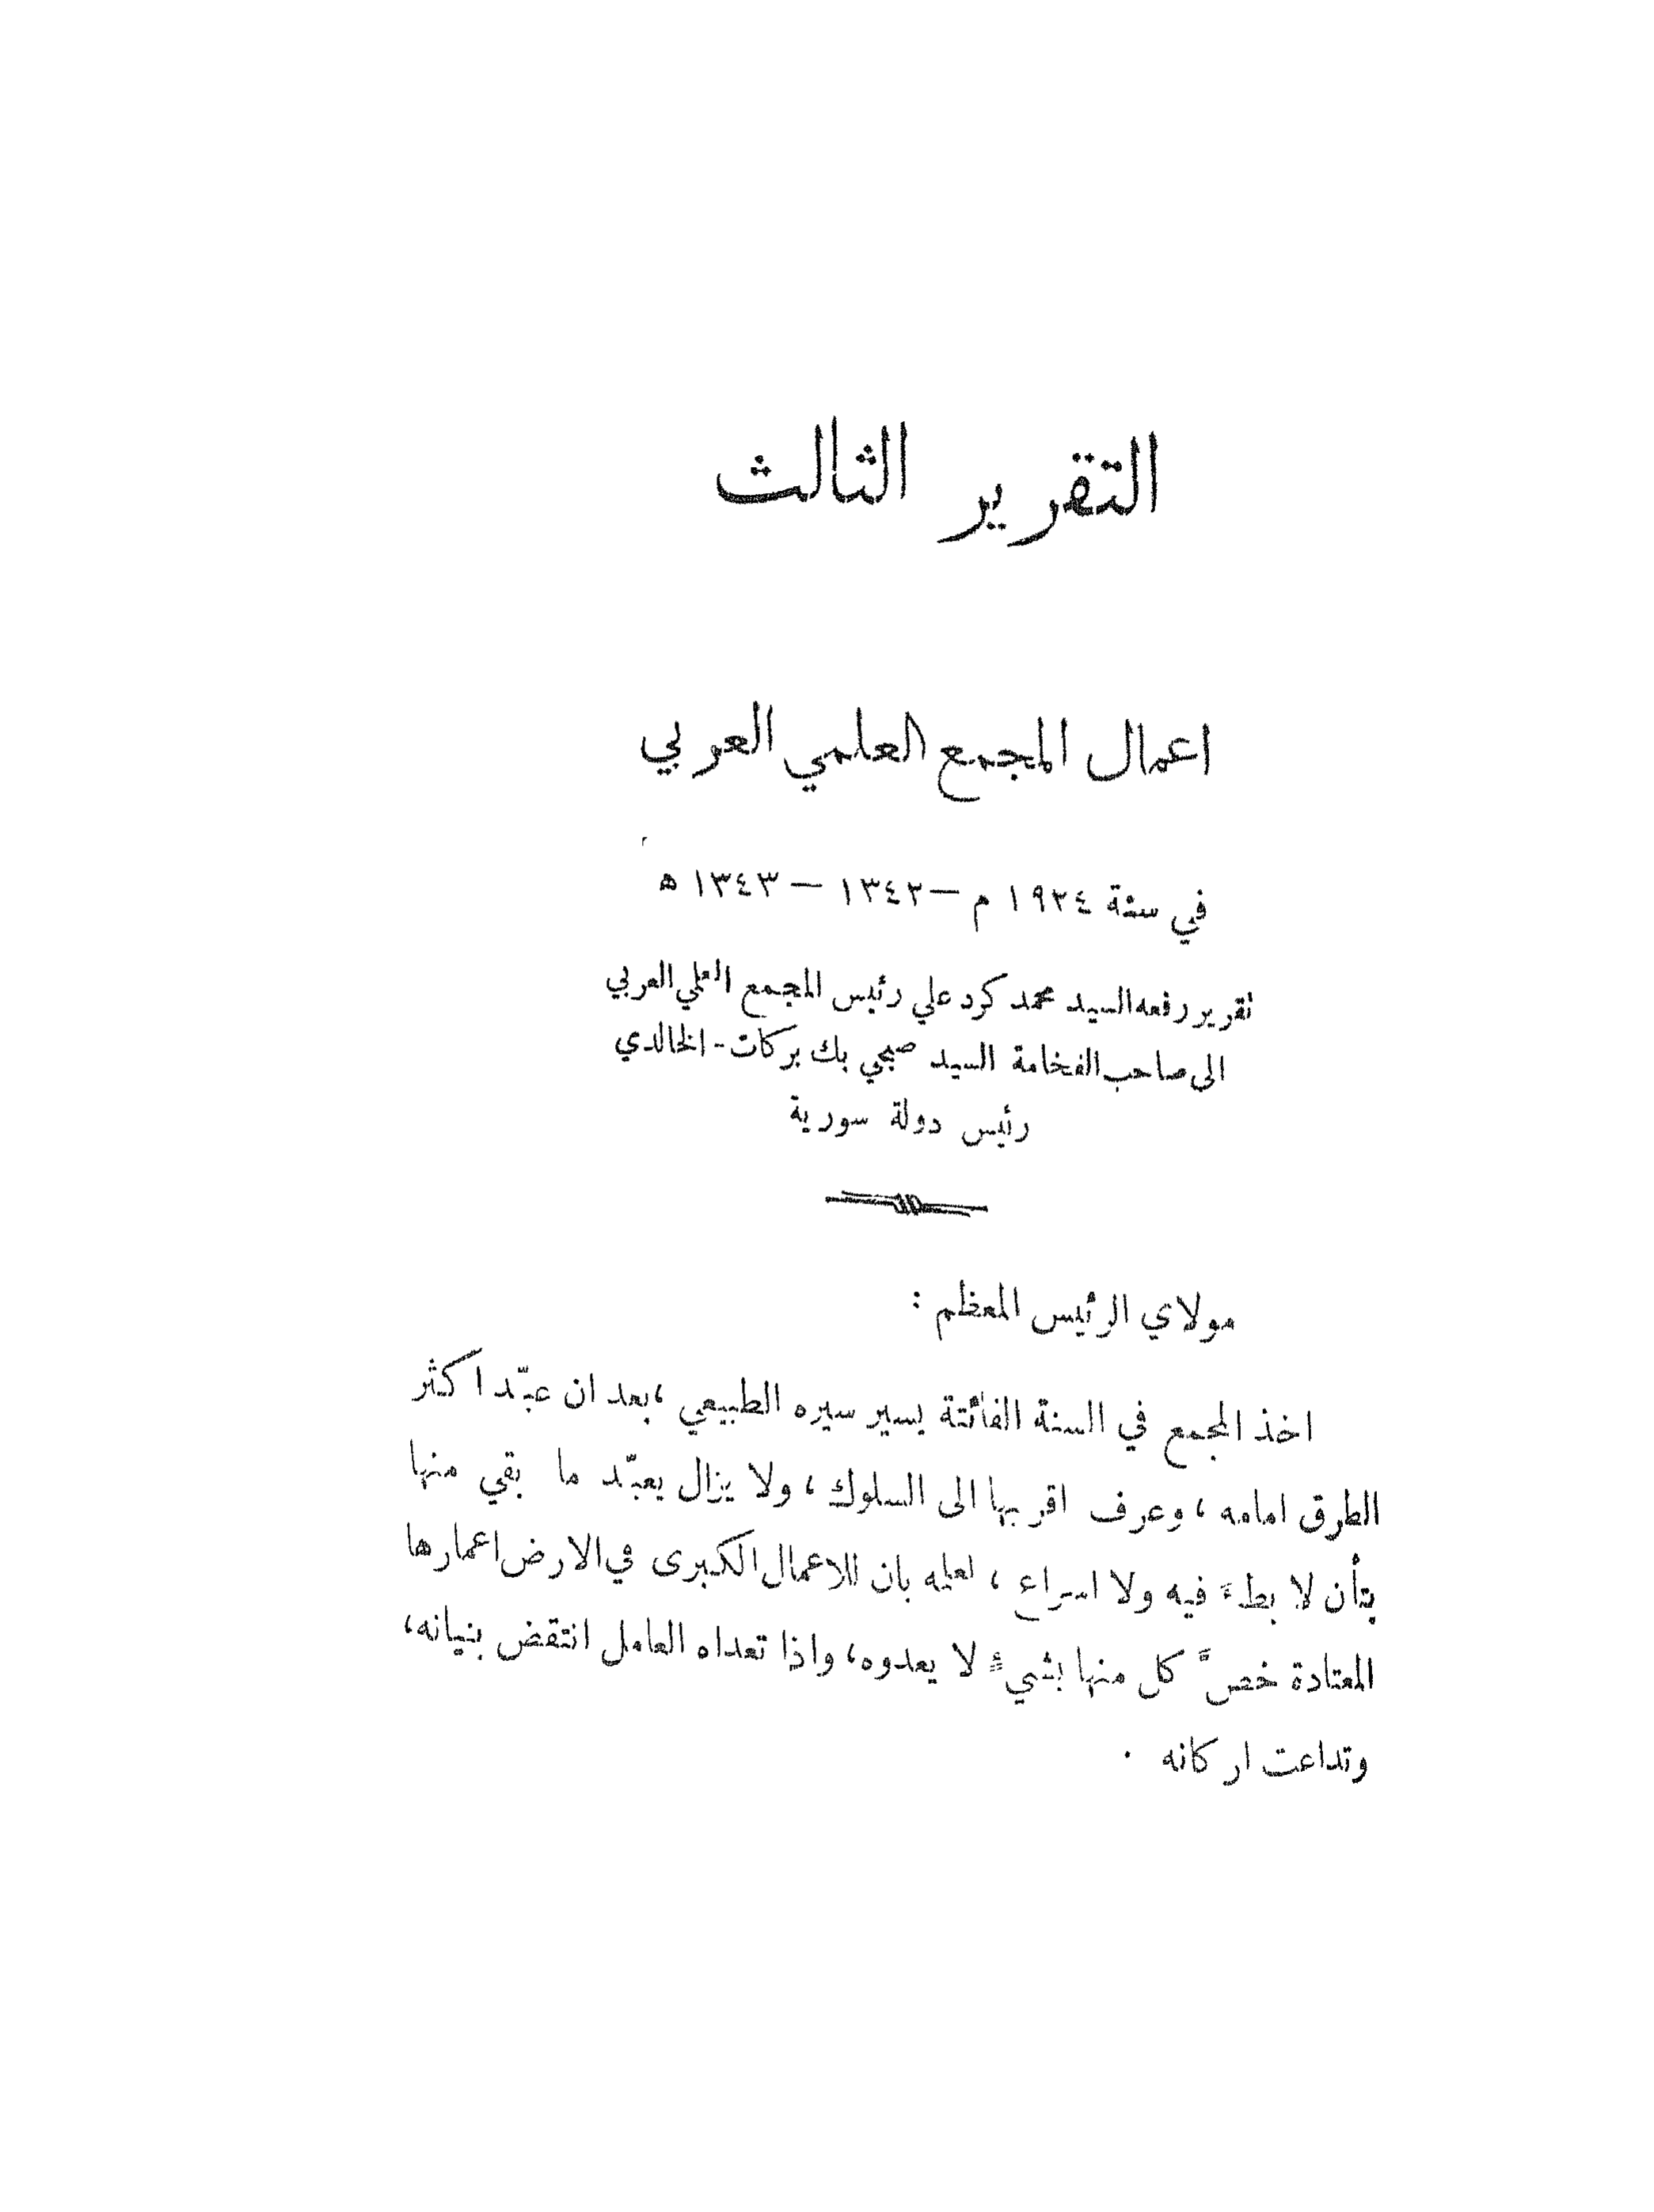 التقرير الثالث
اعمال المجمع العلمي العربي
في سنة ١٩٢٤ م – ١٣٤٢ – ١٣٤٣ ه
تقرير رفعه السيد محمد كرد علي رئيس المجمع العلمي العربي
الى صاحب الفخامة السيد صبحي بك بركات - الخالدي
رئيس دولة سورية
مولاي الرئيس المعظم :
اخذ المجمع في السنة الفائتة يسير سيره الطبيعي ، بعد ان عبّد اكثر
الطرق امامه ، وعرف اقربها الى السلوك ، ولا يزال يعبّد ما بقي منها
بتأن لا بطءَ فيه ولا اسراع ، لعلمه بان للاعمال الكبرى في الارض اعمارها
المعتادة خصَّ كل منها بشيءٍ لا يعدوه، واذا تعداه العامل انتقض بنيانه،
وتداعت اركانه .